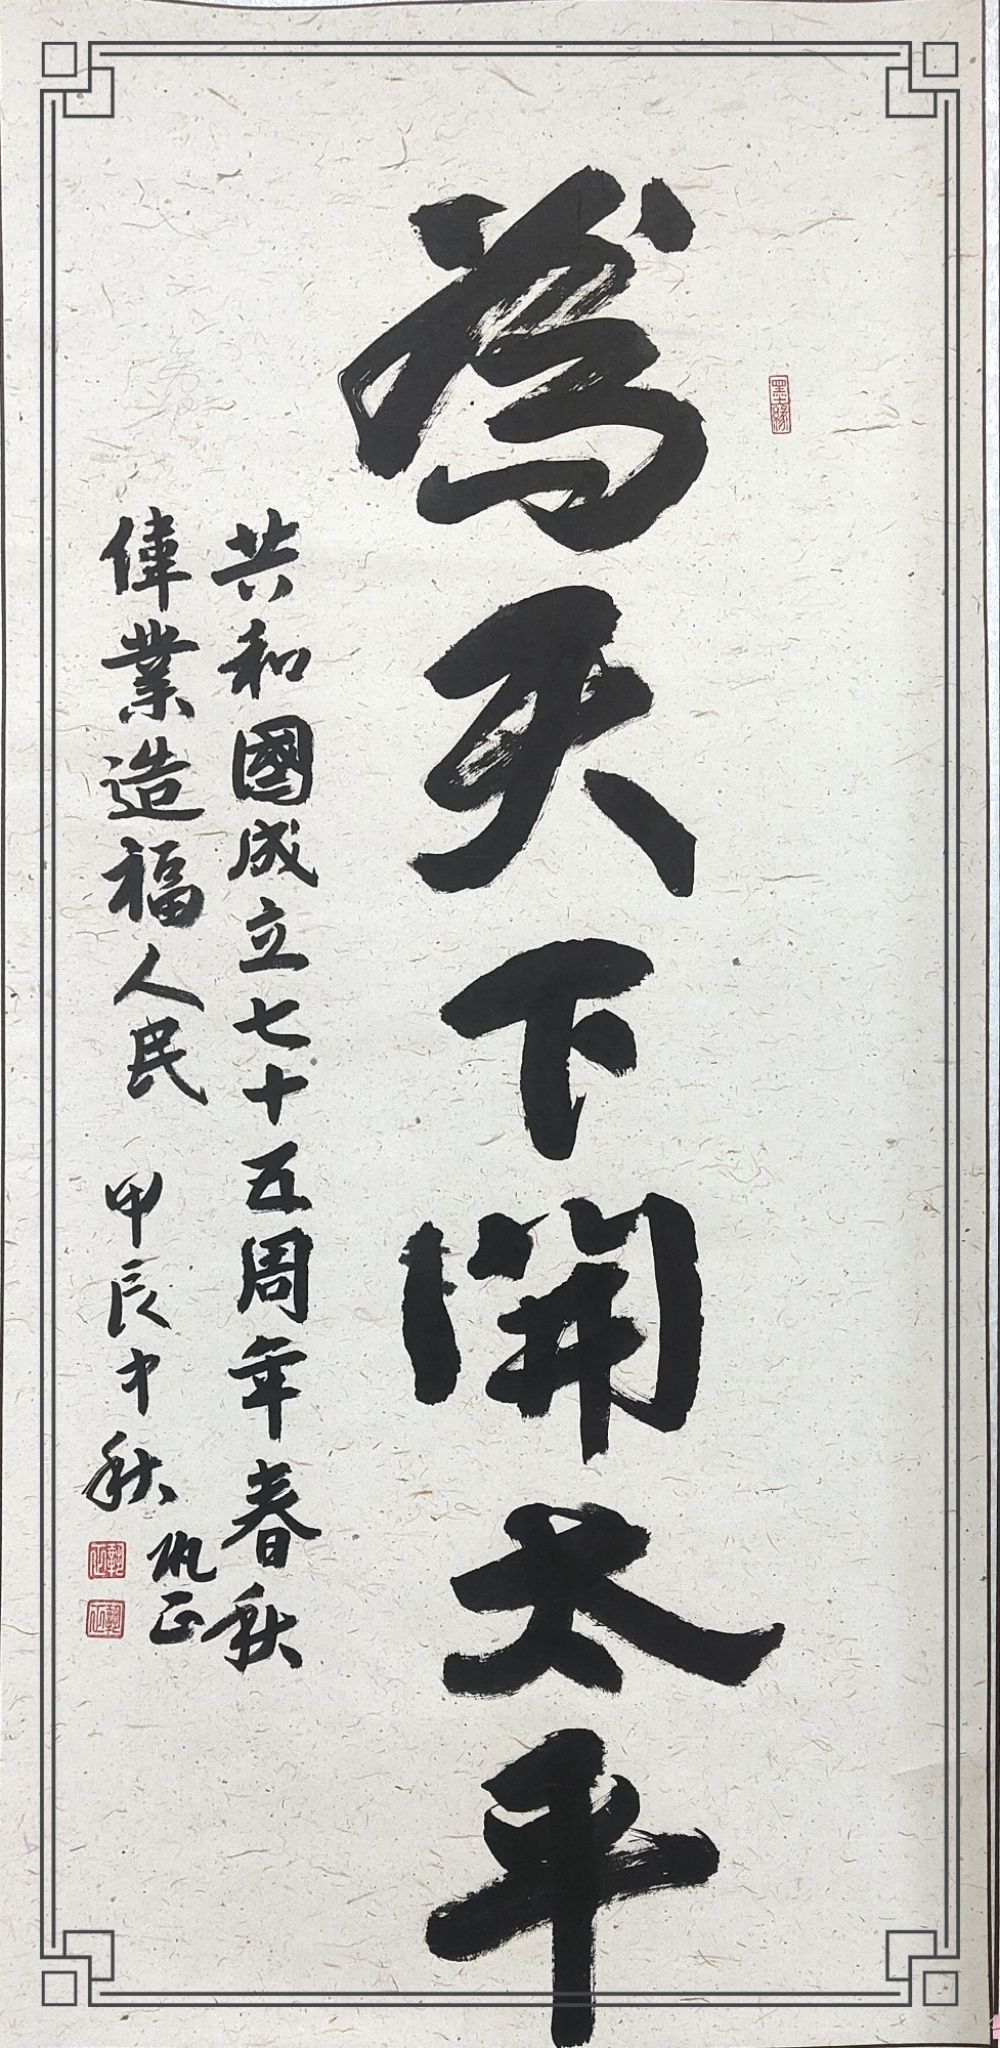 為天下開太平
墨緣
共和國成立七十五周年春秋
偉業造福人民 甲辰中秋
正